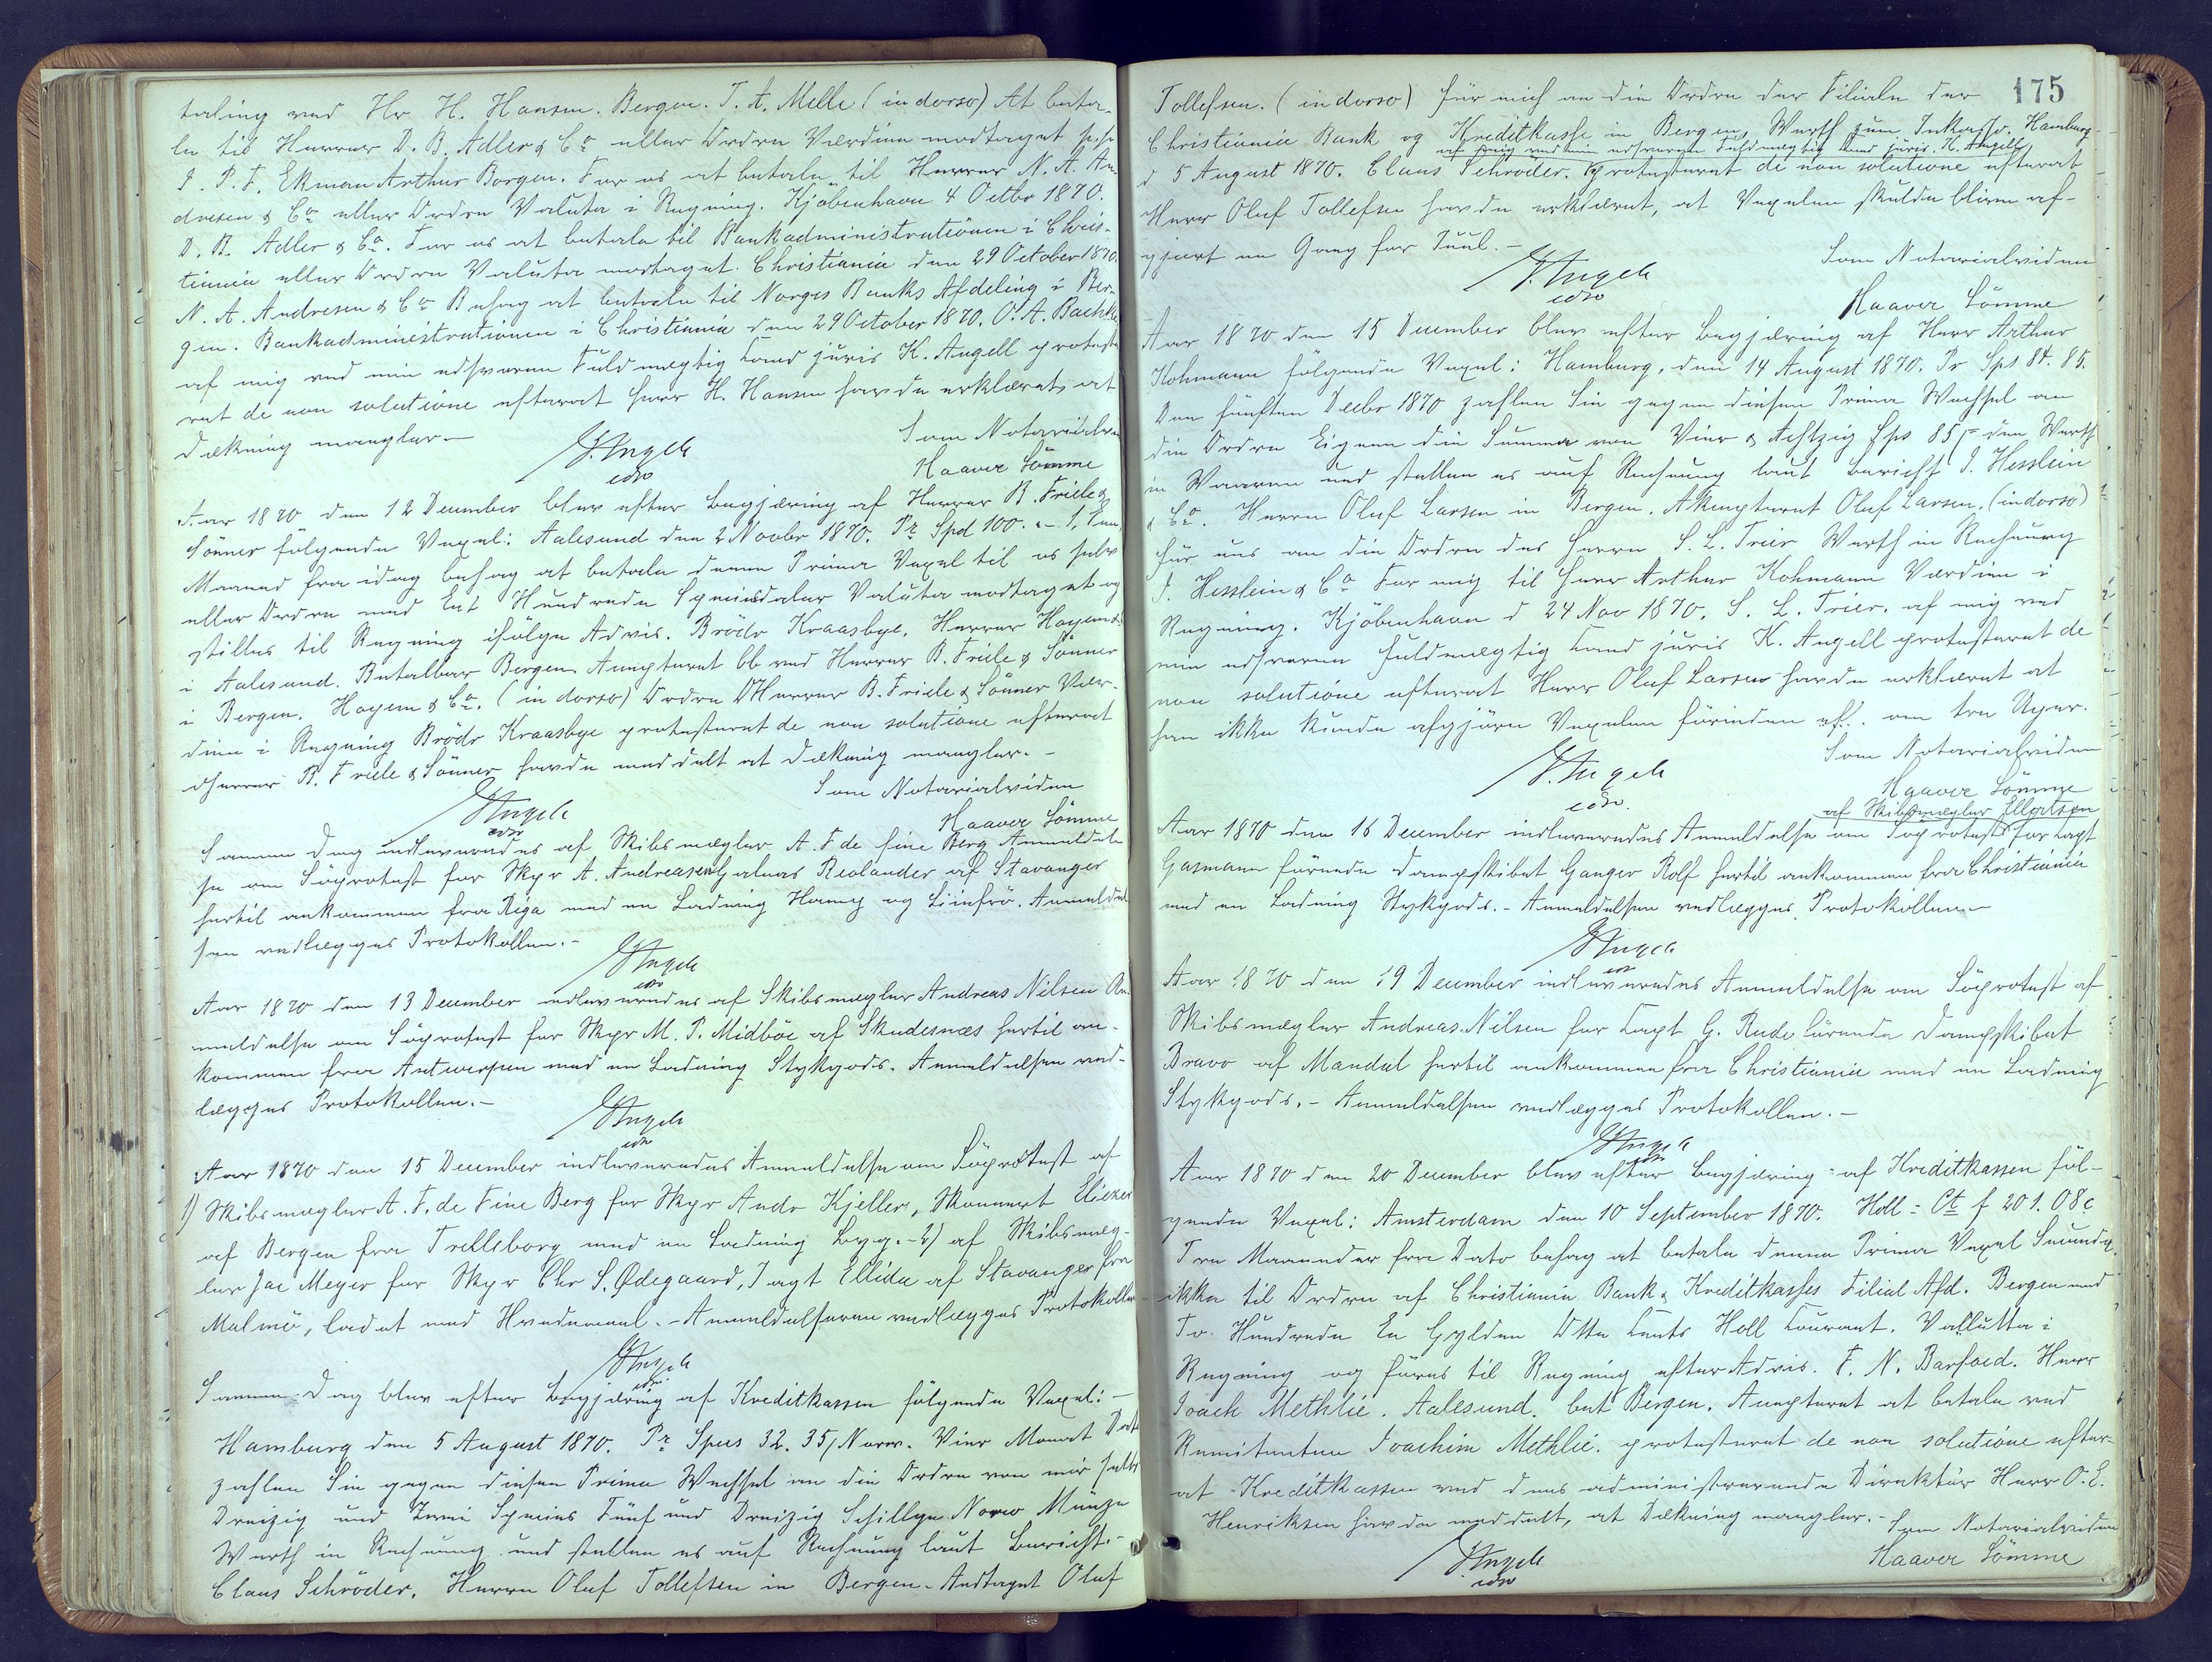 taling ved Hr H. Hansen. Bergen. T. A. Melle (in dorso) At beta-
le til Herrer D. B. Adler & Co eller Ordre Værdien modtaget
I. P. F. Ekman Arthur Borgen. For os at betale til Herrer N. A. An
dresen & Co eller Ordre Valuta i Regning. Kjöbenhavn 4 Octbr 1870.
D. B. Adler & Co. For os at betale til Bankadministrationen i Chris-
tiania eller Ordre Valuta modtaget. Christiania den 29 October 1870.
N. A. Andresen & Co Behag at betale til Norges Banks Afdeling i Ber-
gen. Bankadministrationen i Christiania den 29 October 1870. O. A. Bachke
af mig ved min edsvorne Fuldmægtig Cand juris K. Angell proteste
ret de non solutione efterat Herr H. Hansen havde erklæret, at
Dækning mangler.-
Som Notarialvidne
Haaver Sömme
Aar 1870 den 12 December blev efter Begjæring af Herrer B. Friele &
Sönner følgende Vexel: Aalesund den 2 Novbr 1870. Pr Spd 100. - 1. Een
Maaned fra idag behag at betale denne Prima Vexel til os selv
eller Ordre med Eet Hundrede Speciedaler Valuta modtaget og
stilles til Regning ifölge Advis. Brödr Kraasbye. Herrer Hoyem &
i Aalesund. Betalbar Bergen Accepteret bb ved Herrer B. Friele & Sönner
i Bergen. Hoyem & Co. (in dorso) Ordre DHerrer B. Friele & Sönner Vær-
dien i Regning Brödr Kraasbye protesteret de non solutione efterat
dHerrer B. Friele & Sönner havde meddelt at Dækning mangler.-
Som Notarialvidne
Haaver Sömme
Samme Dag indleveredes af Skibsmægler A. F de Fine Berg Anmeldel
se om Söprotest for Skpr A. Andreasen Galeas Reolander af Stavanger
hertil ankommen fra Riga med en Ladning Hamp og Liinfrö. Anmeldel
sen vedlægges Protokollen.-
Aar 1870 den 13 December indleveredes af Skibsmægler Andreas Nilsen An-
meldelse om Söprotest for Skpr M. P. Midböe af Skudesnæs hertil an-
kommen fra Antwerpen med en Ladning Stykgods. Anmeldelsen ved-
lægges Protokollen.-
Aar 1870 den 15 December indleveredes Anmeldelse om Söprotest af
1) Skibsmægler A. F. de Fine Berg for Skpr Andr Kjeller, Skonnert Eliezer
af Bergen fra Trelleborg med en Ladning Byg.- 2) af Skibsmæg-
ler Jac Meyer for Skpr Chr S. Ødegaard, Jagt Ellida af Stavanger fra
Malmö, ladet med Hvedemeel.- Anmeldelserne vedlægges Protokollen
Samme Dag blev efter Begjæring af Kreditkassen følgende Vexel:-
Hamburg den 5 August 1870. Pr Spcs 32. 35, Norw. Vier Monat Dato
zahlen Sie gegen diesen Prima Wechsel an die Ordre von mir selbst
Dreizig und Zwei Species Fünf und Dreizig Schillge Norw Münze
Werth in Rechnung und stellen es auf Rechnung laut Bericht.-
Claus Schröder. Herrn Oluf Tollefsen in Bergen. Antaget Oluf
175
Tollefsen. (in dorso) für mich an die Ordre der Filiale der
Christiania Bank og Kreditkasse in Bergen, Werth zum Inkasso. Hamburg
af mig ved min edsvorne Fuldmægtig Cand juris. K. Angell
d 5 August 1870. Claus Schröder. protesteret de non solutione efterat
Herr Oluf Tollefsen havde erklæret, at Vexelen skulde blive af-
gjort en Gang før Juul.-
Som Notarialvidne
Haaver Sömme
Aar 1870 den 15 December blev efter Begjæring af Herr Arthur
Kohmann følgende Vexel: Hamburg, den 14 August 1870. Pr Sps 84. 85.
Den fünften Decbr 1870 zahlen Sie gegen diesen Prima Wechsel an
die Ordre Eigene die Summa von Vier & Achtzig Sps 85/= den Werth
in Waaren und stellen es auf Rechnung laut Bericht I. Hesslein
& Co. Herrn Oluf Larsen in Bergen. Akzepteret Oluf Larsen. (in dorso)
Für uns an die Ordre des Herrn S. L. Trier Werth in Rechnung
I. Hesslein & Co For mig til Herr Arthur Kohmann Værdien i
Regning. Kjöbenhavn d 24 Nov 1870. S. L. Trier. af mig ved
min edsvorne Fuldmægtig Cand juris K. Angell protesteret de
non solutione efterat Herr Oluf Larsen havde erklæret at
han ikke kunde afgjöre Vexelen førinden om tre Uger.
Som Notarialvidne
Haaver Sömme
af Skibsmægler Ellertsen
Aar 1870 den 16 December indleveredes Anmeldelse om Söprotest for Capt
Gasmann förende Dampskibet Ganger Rolf hertil ankommen fra Christiania
med en Ladning Stykgods.- Anmeldelsen vedlægges Protokollen.-
Aar 1870 den 19 December indleveredes Anmeldelse om Söprotest af
Skibsmægler Andreas Nilsen for Capt G. Rude förende Dampskibet
Bravo af Mandal hertil ankommen fra Christiania med en Ladning
Stykgods.- Anmeldelsen vedlægges Protokollen.-
Aar 1870 den 20 December blev efter Begjæring af Kreditkassen föl-
gende Vexel: Amsterdam den 10 September 1870. Holl = Ct f 201. 08 c
Tre Maaneder fra Dato behag at betale denne Prima Vexel Secunda
ikke til Ordre af Christiania Bank & Kreditkasses Filial Afd. Bergen med
To Hundrede En Gylden Otte Cents Holl Courant. Vallutta i
Regning og föres til Regning efter Advis. F. N. Barfoed. Herr
Joach Methlie. Aalesund. bet Bergen. Accepteret at betale ved
Remitenten Joachim Methlie. protesteret de non solutione efter-
at Kreditkassen ved dens administrerende Direktör Herr O. E.
Henriksen havde meddelt, at Dækning mangler.- Som Notarialvidne
Haaver Sömme